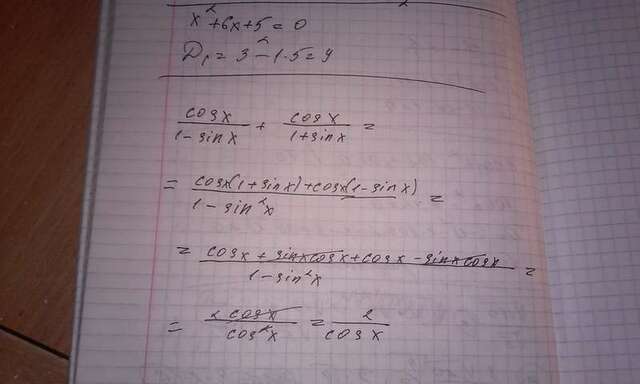 x²+6x+5=0
D₁=3²-1·5=4
cosx/(1-sinx) + cosx/(1+sinx) =
= (cosx(1+sinx)+cosx(1-sinx))/(1-sin²x) =
= (cosx+sinxcosx+cosx-sinxcosx)/(1-sin²x) =
= 2cosx/cos²x = 2/cosx